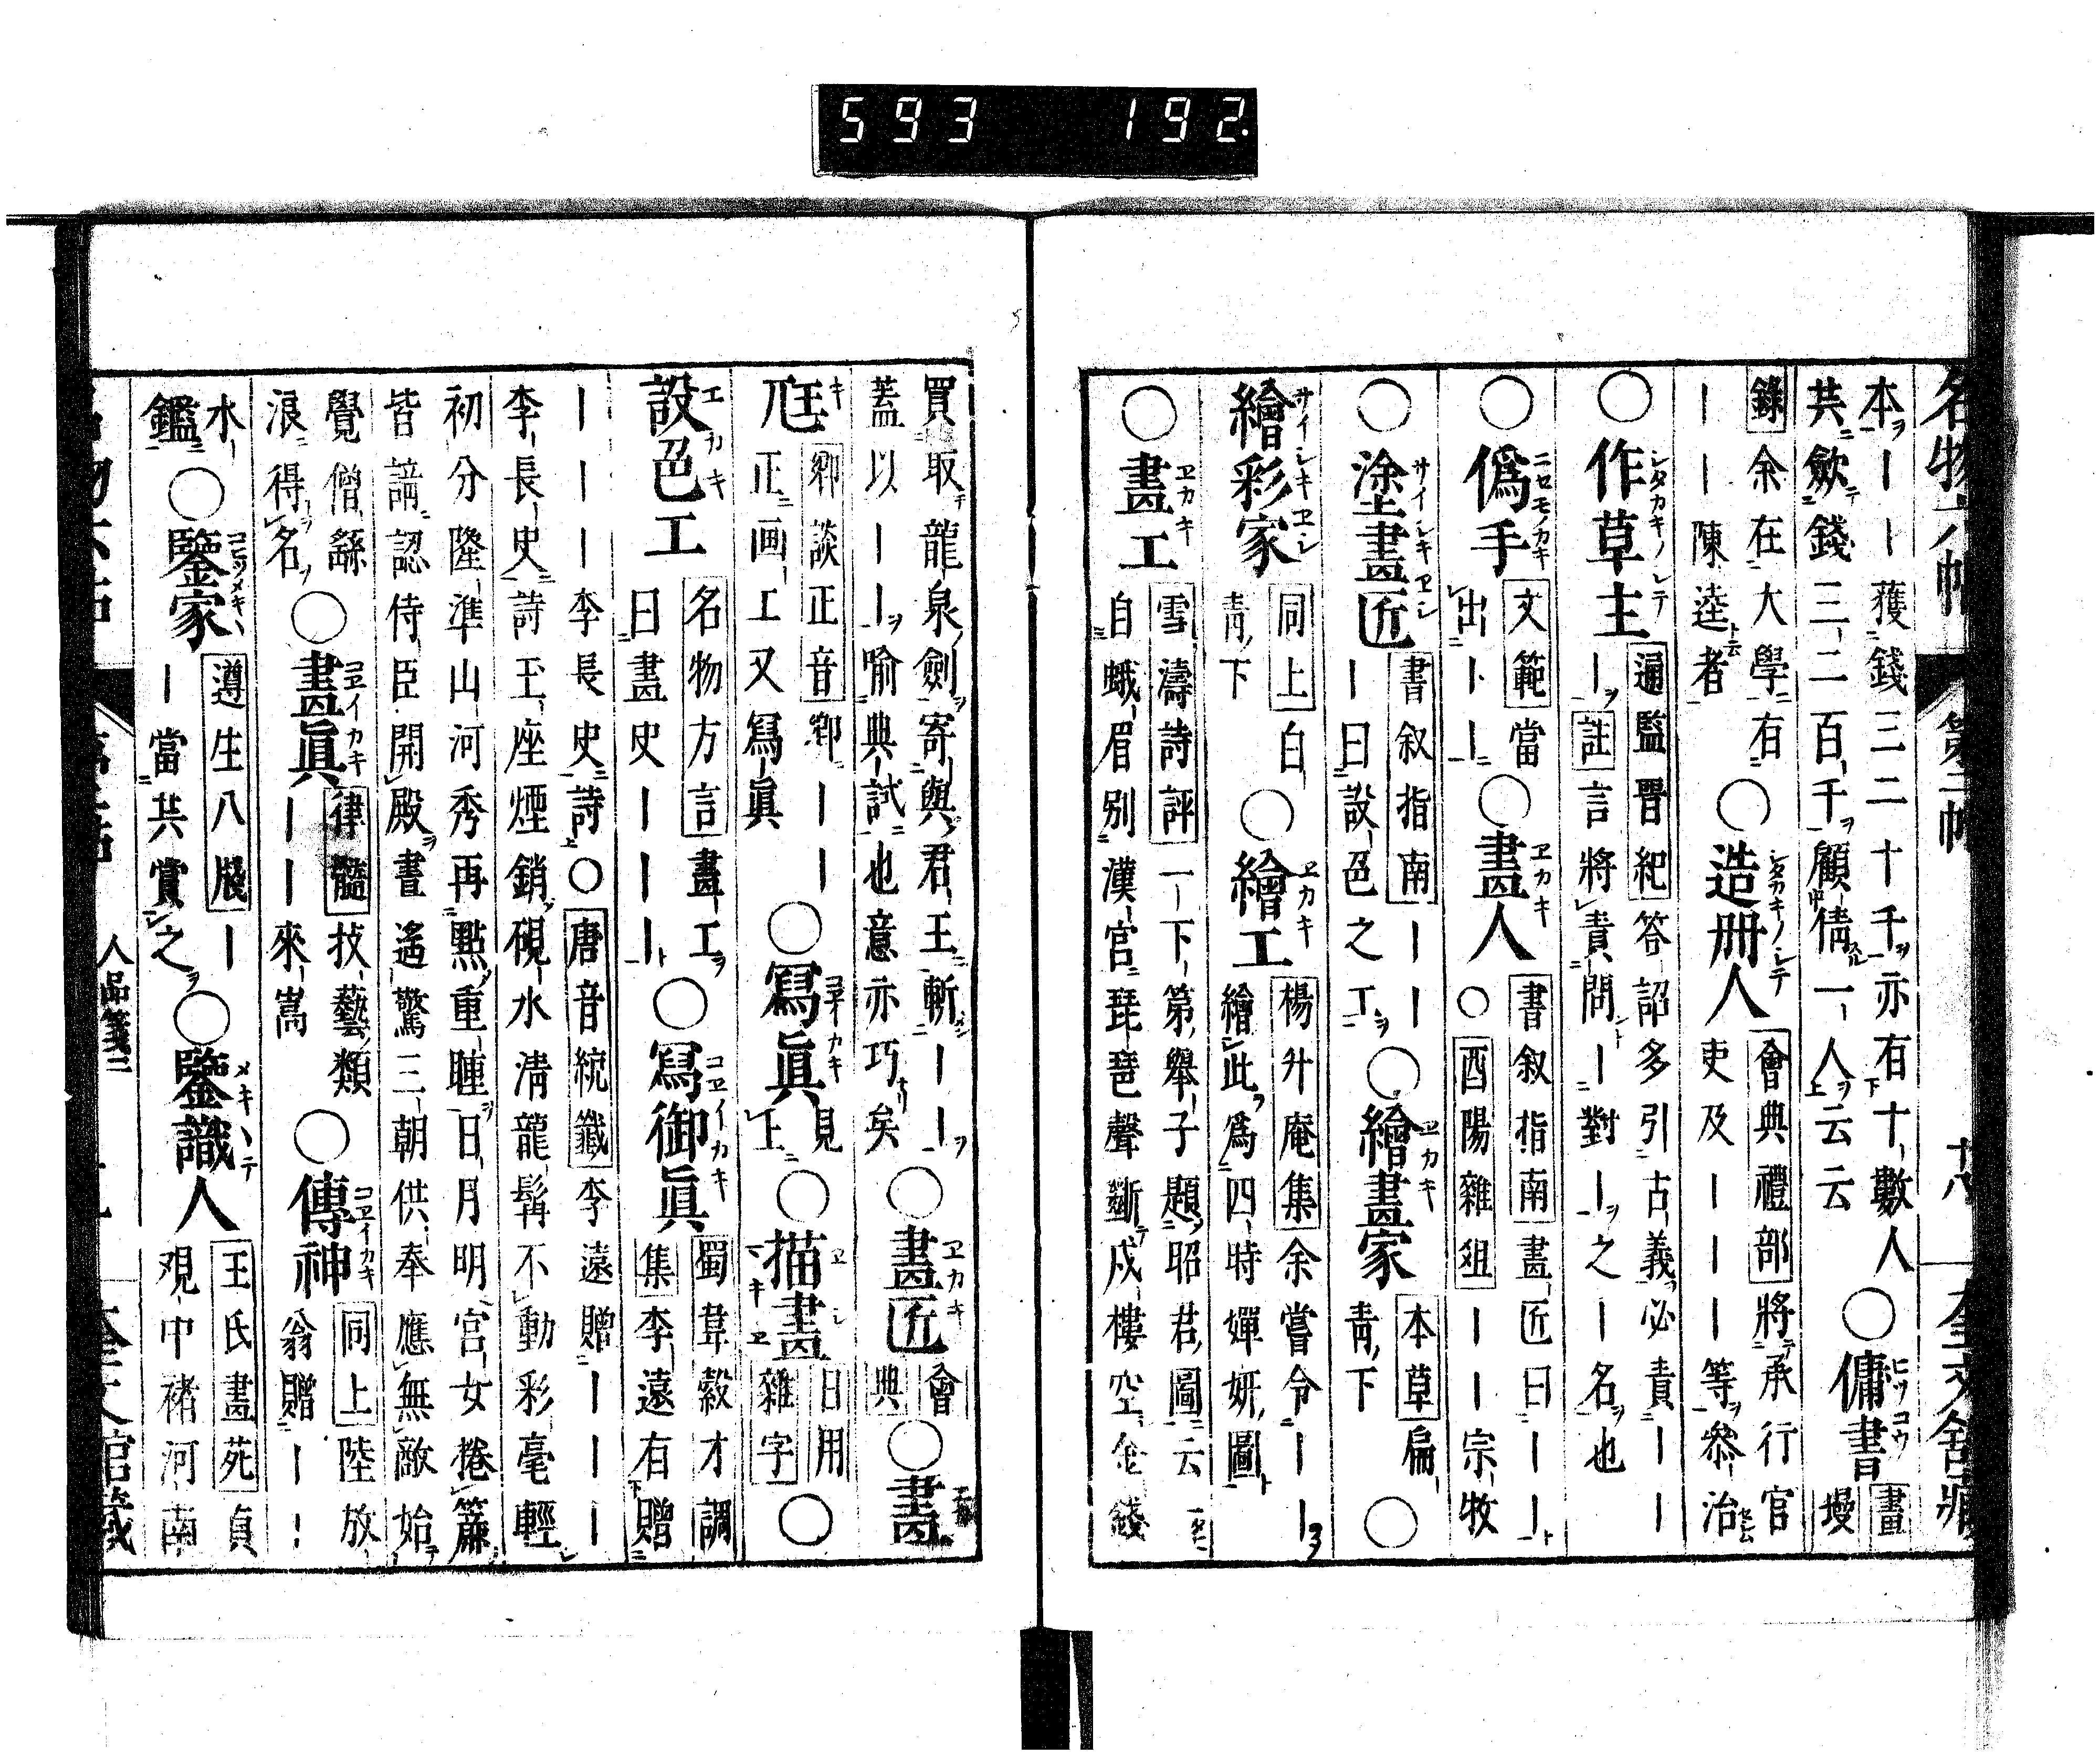 593 192.
名物六帖 第二帖 十八 奎文舘藏
本ヲ｜｜獲錢三二十千ヲ亦有十數人○傭書
畫墁
共歛テ錢三二百千ヲ顧倩一人ヲ云云
錄余在大學有○造册人 會典禮部將承行官
｜｜陳逵者 吏及｜｜｜等參治
○作草主 通監晋紀答詔多引古義必責｜｜
｜註言將責問｜對｜之｜名也
○僞手 文範當出｜｜○畫人 書叙指南畫匠曰｜｜
○酉陽雜俎｜｜宗牧
○塗畫匠 書叙指南｜｜｜曰設色之工○繪畫家 本草扁青下○
繪彩家 同上白青下○繪工 楊升庵集余嘗令｜｜
繪此爲四時嬋妍圖
○畫工 雪濤詩評一下第舉子題昭君圖云
自蛾眉別漢宮琵琶聲斷戍樓空金錢
買取龍泉劍寄與君王斬｜｜○畫匠 會典○畫
蓋以｜｜喻典試也意亦巧矣
尫 鄉談正音鄉｜｜○寫眞 見上○描畫 日用雜字○
正画工又寫眞
設色工 名物方言畫工曰畫史｜｜｜○寫御眞 蜀韋縠才調集李遠有贈
｜｜｜李長史詩○唐音統籤李遠贈｜｜｜
李長史詩玉座煙銷硯水清龍髯不動彩毫輕
初分隆準山河秀再點重瞳日月明宮女捲簾
皆諳認侍臣開殿晝遙驚三朝供奉應無敵始
覺僧繇浪得名○畫眞 律髓技藝類｜｜來嵩○傳神 同上陸放翁贈｜｜
水鑑○鑒家 遵生八牋｜｜當共賞之○鑒識人 王氏畫苑貞觀中褚河南
人品箋三